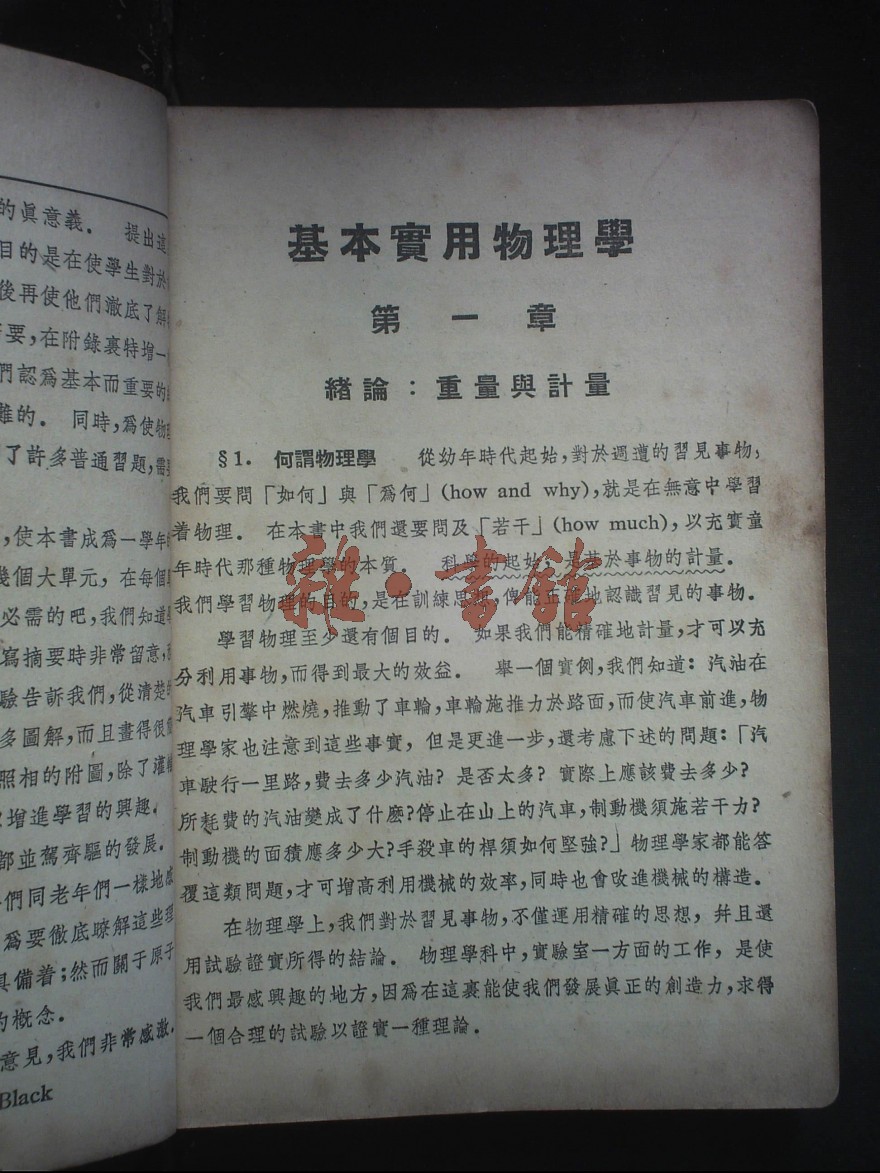 的眞意義． 提出這
目的是在使學生對於
後再使他們澈底了解
要,在附錄裏特增一
們認爲基本而重要的
難的． 同時,爲使物理
了許多普通習題,需
,使本書成爲一學年
幾個大單元,在每個
必需的吧,我們知道
寫摘要時非常留意,
驗告訴我們,從淸楚的
多圖解,而且畫得很
照相的附圖,除了
增進學習的興趣．
都並駕齊驅的發展．
們同老年們一樣地感
爲要徹底瞭解這些理
具備着;然而關于原子
的槪念．
意見,我們非常感激．
Black
基本實用物理學
第一章
緒論：重量與計量
§1. 何謂物理學 從幼年時代起始,對於週遭的習見事物,
我們要問「如何」與「爲何」(how and why),就是在無意中學習
着物理． 在本書中我們還要問及「若干」(how much),以充實童
年時代那種物理學的本質． 科學的起始,是基於事物的計量．
我們學習物理的目的,是在訓練思想,俾能正確地認識習見的事物．
學習物理至少還有個目的． 如果我們能精確地計量,才可以充
分利用事物,而得到最大的效益． 舉一個實例,我們知道：汽油在
汽車引擎中燃燒,推動了車輪,車輪施推力於路面,而使汽車前進,物
理學家也注意到這些事實,但是更進一步,還考慮下述的問題：「汽
車駛行一里路,費去多少汽油？是否太多？實際上應該費去多少？
所耗費的汽油變成了什麽？停止在山上的汽車,制動機須施若干力？
制動機的面積應多少大？手殺車的桿須如何堅強？」物理學家都能答
覆這類問題,才可增高利用機械的效率,同時也會改進機械的構造．
在物理學上,我們對於習見事物,不僅運用精確的思想,幷且還
用試驗證實所得的結論． 物理學科中,實驗室一方面的工作,是使
我們最感興趣的地方,因爲在這裏能使我們發展眞正的創造力,求得
一個合理的試驗以證實一種理論．
雜·書館